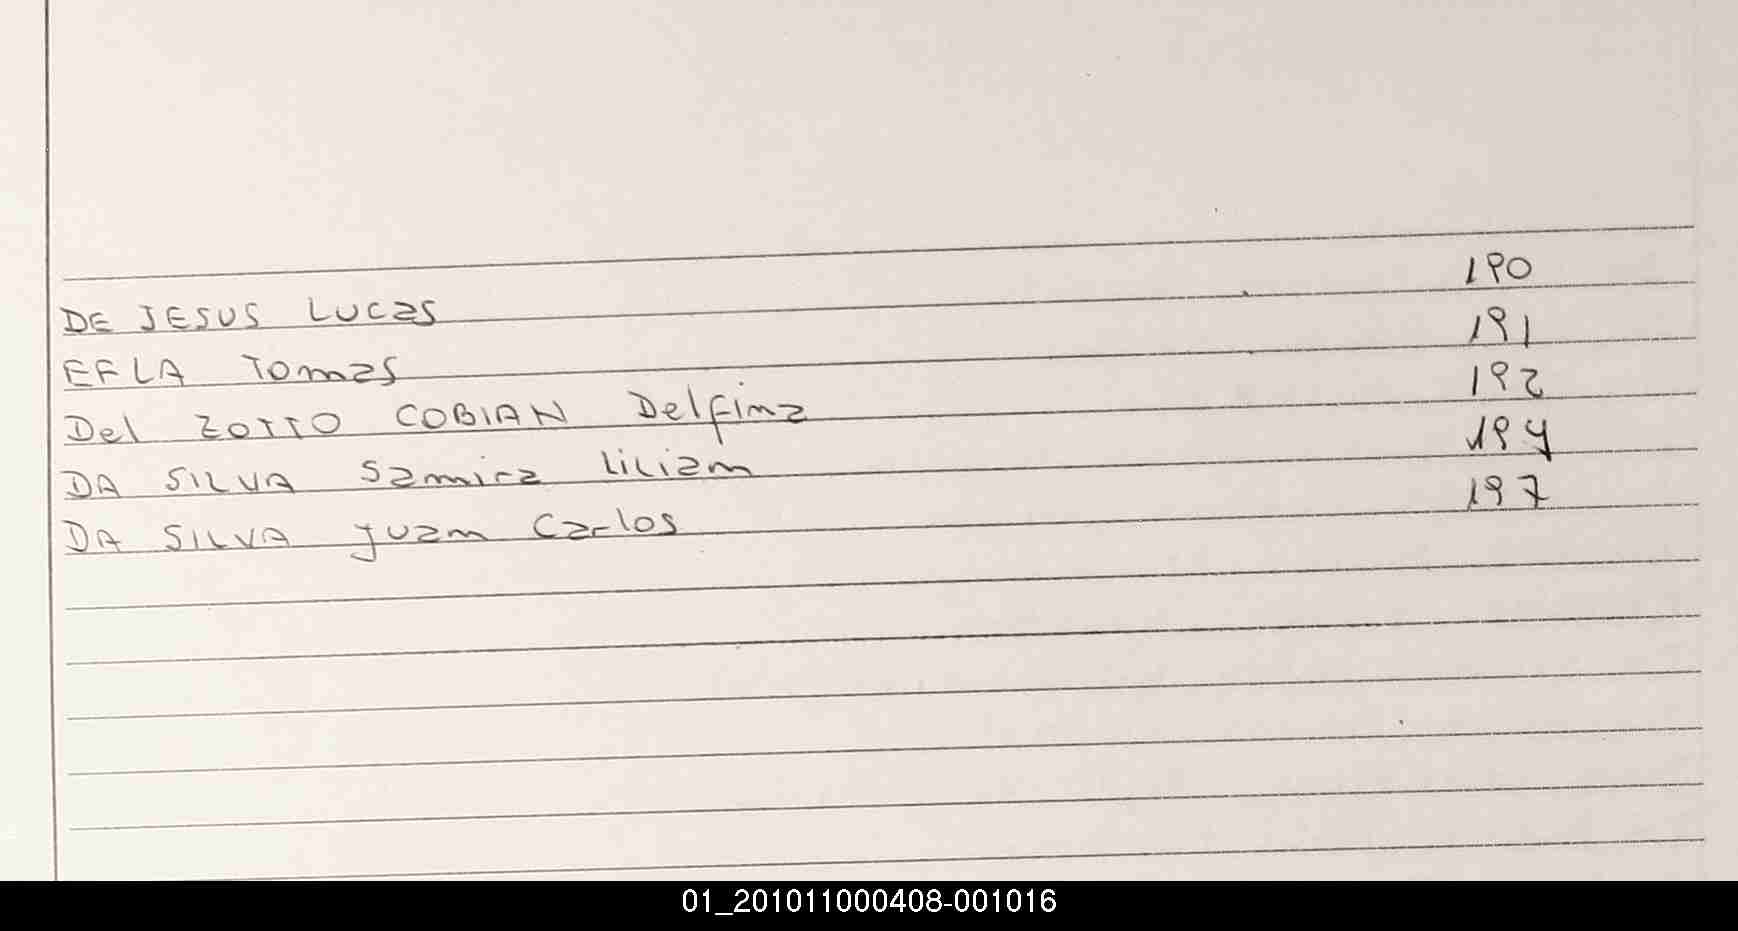 DE JESUS Lucas 190
EFLA Tomas 191
Del ZOTTO COBIAN Delfina 192
DA SILVA Samira Liliam 194
DA SILVA Juan Carlos 197
01_201011000408-001016